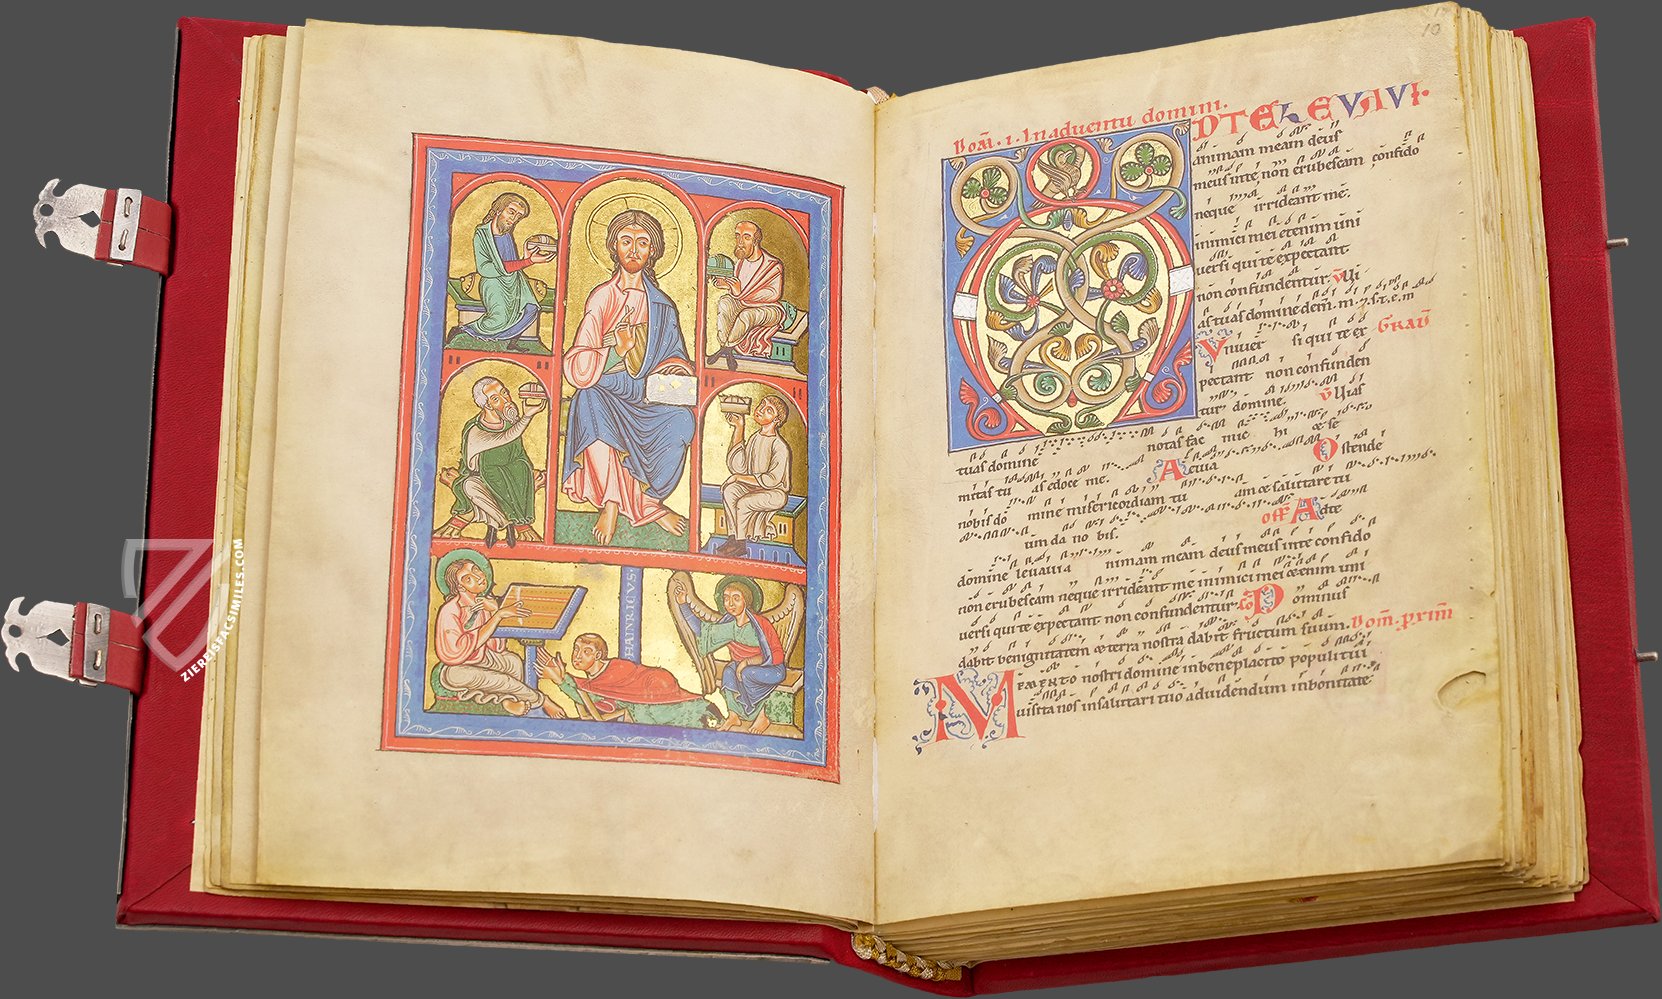 HAINRICVS
10
Dom̄. i. In aduentu domini.
ADTE LEVAVI.
animam meam deus
meus inte non erubescam confido
neque irrideant me.
inimici mei etenim uni
uersi qui te expectant
non confundentur. V̄ Vi
as tuas domine dem̄.
Vniuer si qui te ex GRAD̄
pectant non confunden
tur domine. V̄ Vias
tuas domine notas fac mic hi &se
mitas tu as edoce me. Aeuia Ostende
nobis dō mine misericordiam tu am & salutare tu
um da no bis. off̄ Adte
domine leuaui a nimam meam deus meus inte confido
non erubescam neque irrideant me inimici mei &enim uni
uersi qui te expectant non confundentur. cō Dominus
dabit benignitatem & terra nostra dabit fructum suum. Dom̄. prxim̄
MEMENTO nostri domine inbeneplacito populi tui
uisita nos insalutari tuo aduidendum inbonitate
ZIEREISFACSIMILES.COM